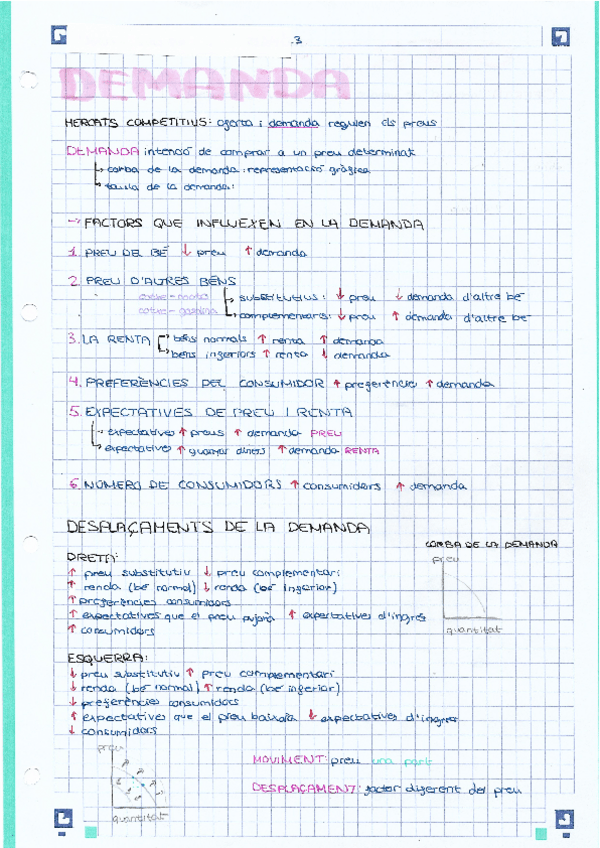 3
DEMANDA
MERCATS COMPETITIUS: oferta i demanda regulen els preus
DEMANDA intenció de comprar a un preu determinat
↳ corba de la demanda: representació gràfica
↳ taula de la demanda:
→ FACTORS QUE INFLUEXEN EN LA DEMANDA
1. PREU DEL BÉ ↓ preu ↑ demanda
2. PREU D'ALTRES BÉNS
cotxe-moto ↳ substitutius: ↓ preu ↓ demanda d'altre bé
cotxe-gasolina ↳ complementaris: ↓ preu ↑ demanda d'altre bé
3. LA RENTA béns normals ↑ renta ↑ demanda
béns inferiors ↑ renta ↓ demanda
4. PREFERÈNCIES DEL CONSUMIDOR ↑ preferència ↑ demanda
5. EXPECTATIVES DE PREU I RENTA
↳ expectatives ↑ preus ↑ demanda PREU
↳ expectatives ↑ guanyar diners ↑ demanda RENTA
6. NÚMERO DE CONSUMIDORS ↑ consumidors ↑ demanda
DESPLAÇAMENTS DE LA DEMANDA
CORBA DE LA DEMANDA
preu
quantitat
DRETA:
↑ preu substitutiu ↓ preu complementari
↑ renda (bé normal) ↓ renda (bé inferior)
↑ preferències consumidors
↑ expectatives que el preu pujarà ↑ expectatives d'ingrés
↑ consumidors
ESQUERRA:
↓ preu substitutiu ↑ preu complementari
↓ renda (bé normal) ↑ renda (bé inferior)
↓ preferències consumidors
↑ expectatives que el preu baixarà ↓ expectatives d'ingrés
↓ consumidors
preu
quantitat
MOVIMENT: preu una part
DESPLAÇAMENT: factor diferent del preu